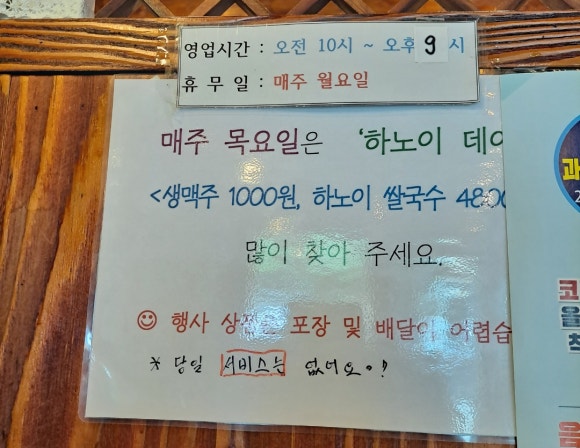 영업시간 : 오전 10시 ~ 오후 9시
휴 무 일 : 매주 월요일
매주 목요일은 '하노이 데이
<생맥주 1000원, 하노이 쌀국수 4800
많이 찾아 주세요.
☺ 행사 상품은 포장 및 배달이 어렵습
* 당일 서비스는 없네요!